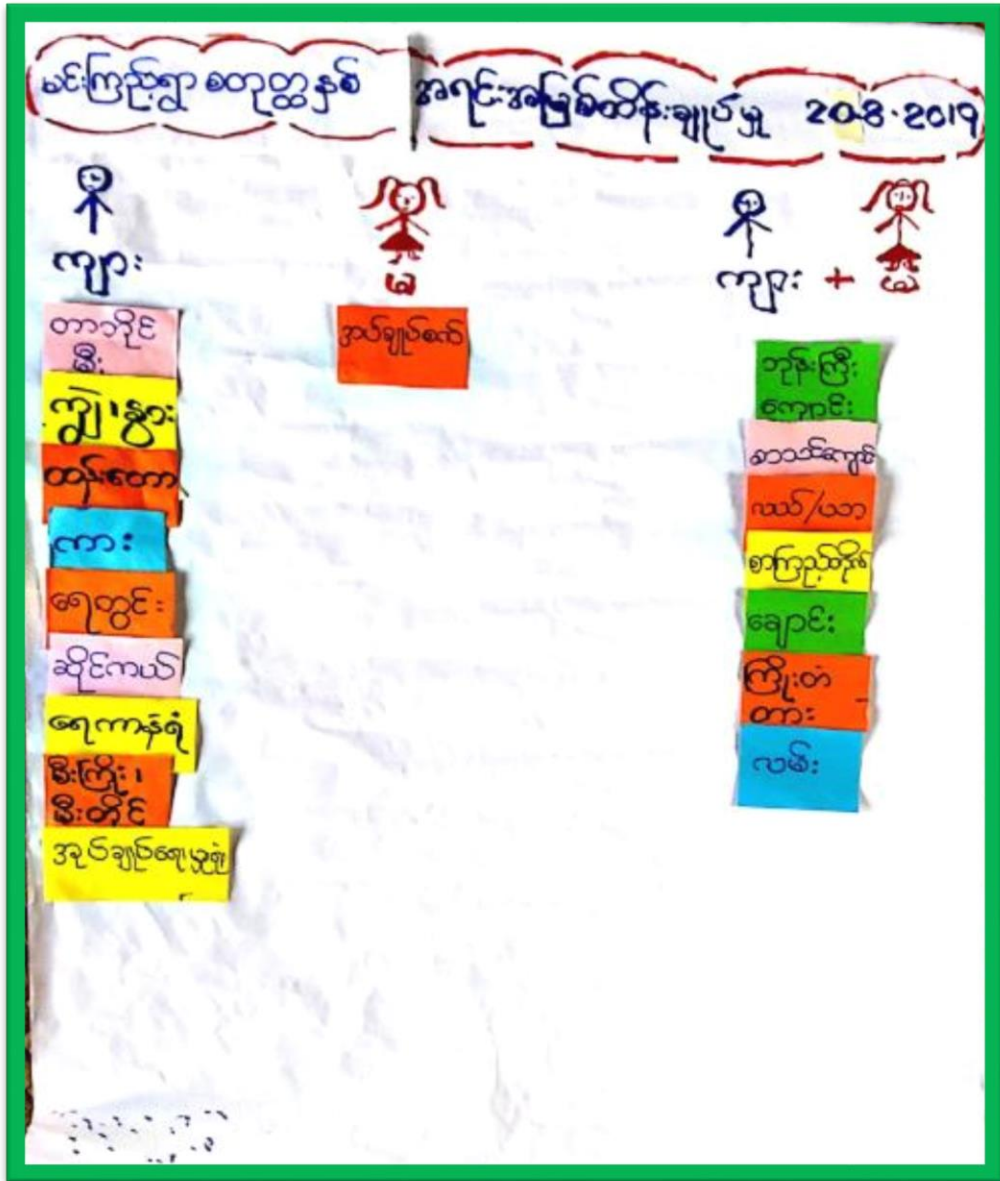 မင်းကြည့်ရွာ စတုတ္ထနှစ် အရင်းအမြစ်ထိန်းချုပ်မှု 20.8.2019
ကျား
မ
ကျား + မ
တာဘိုင်
စီး
ကျွဲ၊ နွား
ထန်းတော
ကား
ရေတွင်း
ဆိုင်ကယ်
ရေကာနံရံ
မီးကြိုး၊
မီးတိုင်
အုပ်ချုပ်ရေးမှူးရုံး
အပ်ချုပ်စက်
ဘုန်းကြီး
ကျောင်း
စာသင်ကျောင်း
လယ်/ယာ
စာကြည့်တိုက်
ချောင်း
ကြိုးတံ
တား
လမ်း